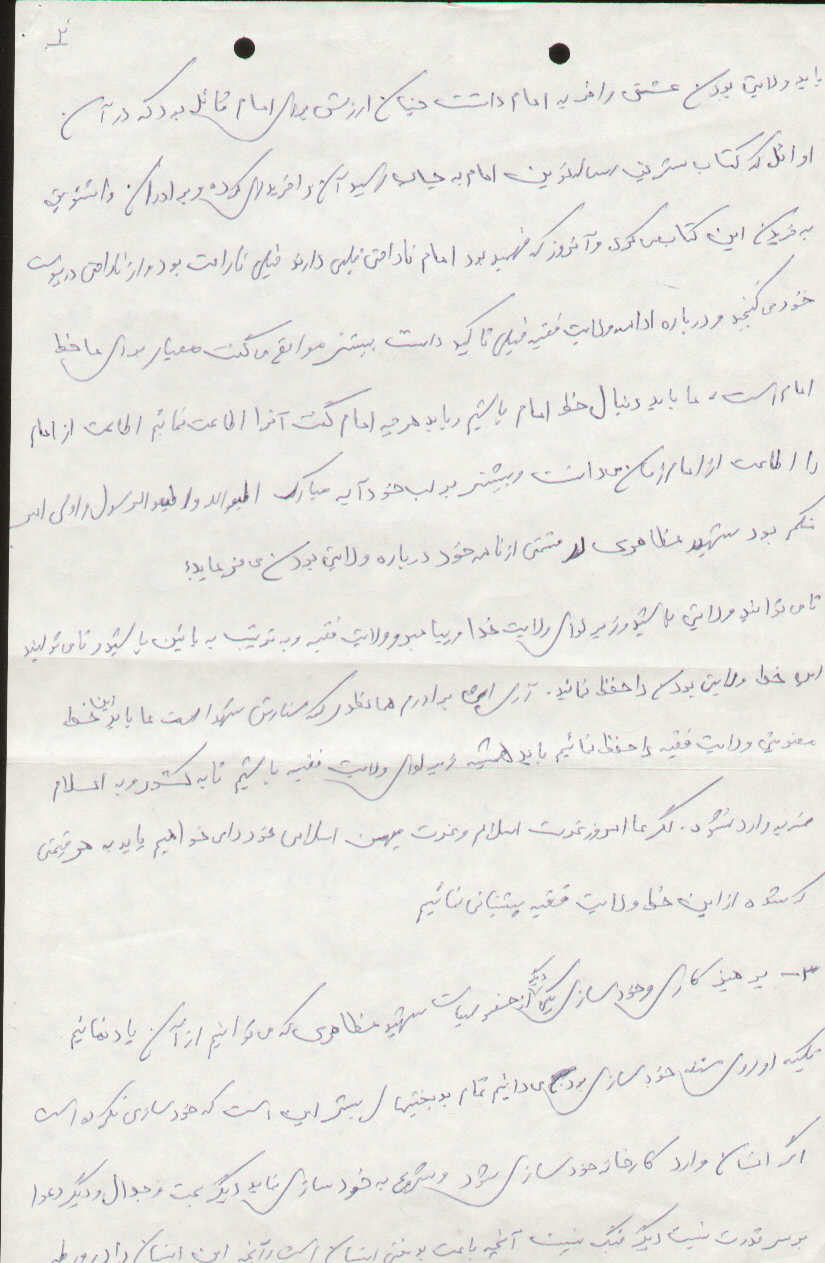 ۲
باید ولایتی بودن عشق وافر به امام داشت چنان ارزش برای امام قائل بود که در آن
اوائل که کتاب شریف رساله نوین امام به چاپ رسید آن را خریداری کرده و برادران را تشویق
به خریدن این کتاب می کرد و آنروز که فهمید بود امام ناراحتی قلبی دارند خیلی ناراحت بود و از ناراحتی در پوست
خود نمی گنجید و درباره ادامه ولایت فقیه خیلی تاکید داشت بیشتر مواقع می گفت معیار برای ما خط
امام است، ما باید دنبال خط امام باشیم و باید هر چه امام گفت آنرا اطاعت نمائیم اطاعت از امام
را اطاعت از امام زمان می دانست و بیشتر بر لب خود آیه مبارک اطیعوالله و اطیعو الرسول و اولی الامر
منکم بود شهید مظاهری در قسمتی از نامه خود درباره ولایتی بودن می فرماید:
تا می توانید ولایتی باشید و زیر لوای ولایت خدا و پیامبر و ولایت فقیه و به ترتیب به پائین باشید و تا می توانید
این خط ولایتی بودن را حفظ نمائید. آری برادرم همانطوری که سفارش شهدا است ما باید این خط
معنویتی ولایت فقیه را حفظ نمائیم باید همیشه زیر لوای ولایت فقیه باشیم تا به کشور و به اسلام
ضربه وارد نشود. اگر ما امروز عزت اسلام و عزت میهن اسلامی خود را می خواهیم باید به هر قیمتی
که شده از این خط ولایت فقیه پشتیبانی نمائیم
۳- پرهیز کاری و خودسازی یکی دیگر از خصوصیات شهید مظاهری که می توانیم از آن یاد نمائیم
تکیه او روی مسئله خودسازی بود می دانیم تمام بدبختیهای بشر این است که خودسازی نکرده است
اگر انسان وارد کارخانه خودسازی شود و شروع به خودسازی نماید دیگر بحث و جدال و دیگر دعوا
بر سر قدرت نیست دیگر جنگ نیست آنچه باعث بدبختی انسان است و آنچه این انسان را در ورطه